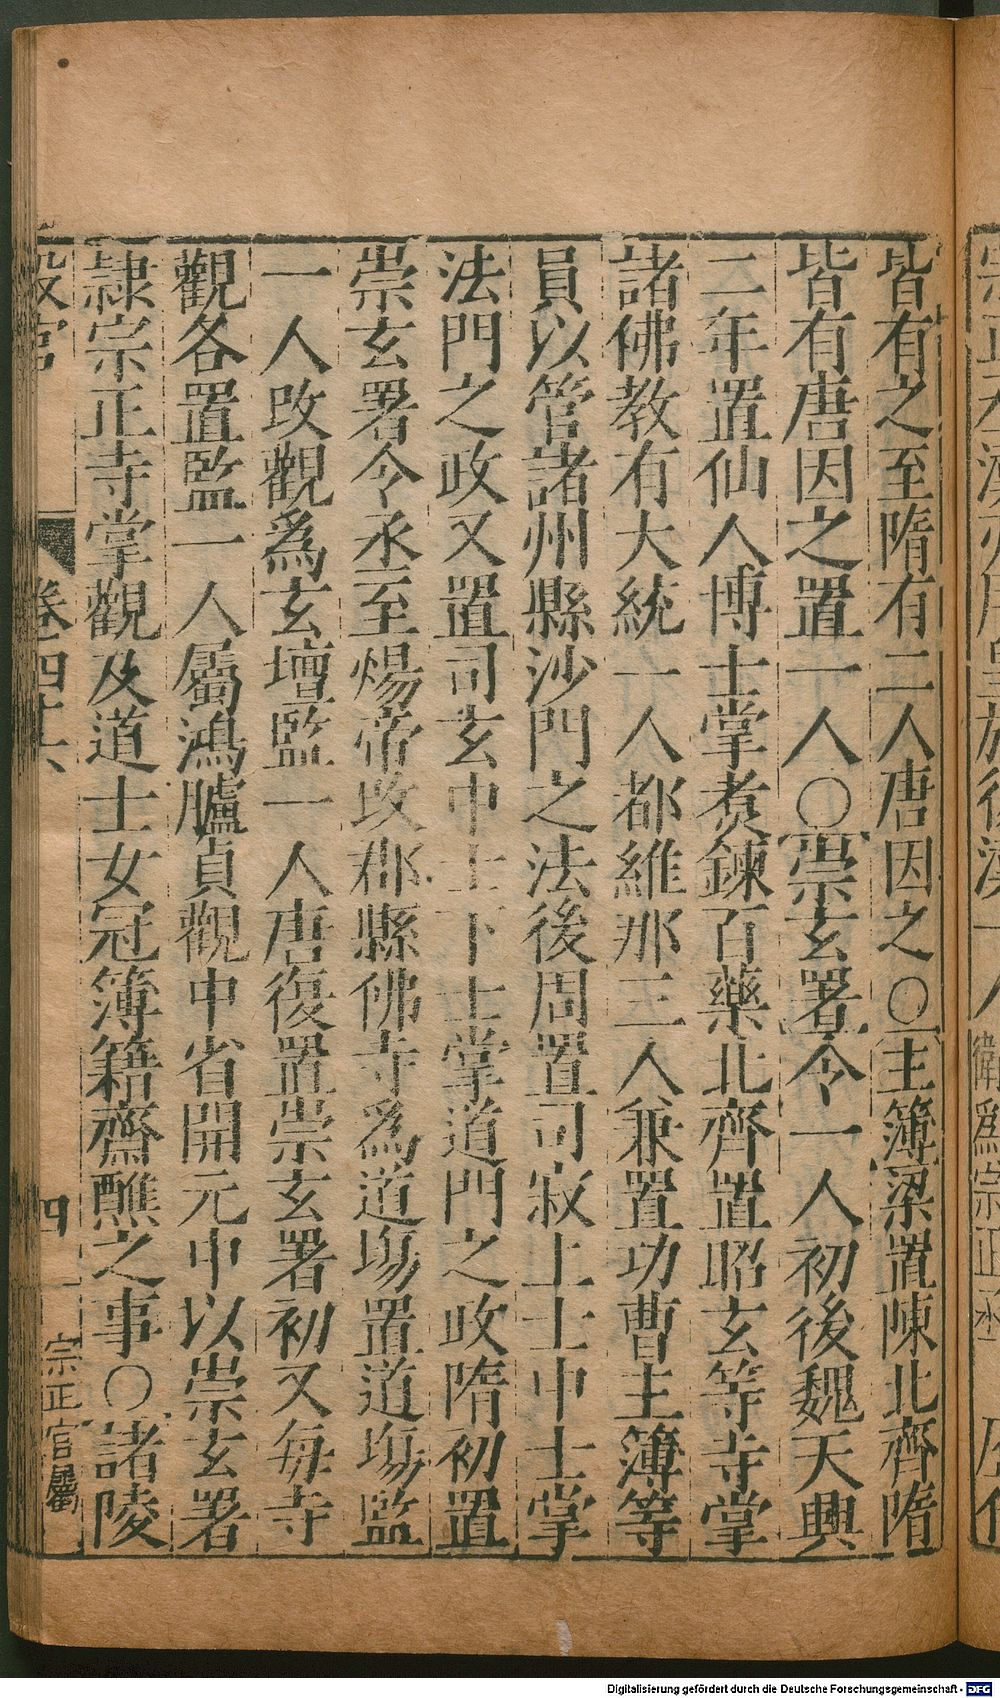 皆有之至隋有二人唐因之○主簿梁置陳北齊隋
皆有唐因之置一人○崇玄署令一人初後魏天興
二年置仙人博士掌煑鍊百藥北齊置昭玄等寺掌
諸佛教有大統一人都維那三人兼置功曹主簿等
員以管諸州縣沙門之法後周置司寂上士中士掌
法門之政又置司玄中士下士掌道門之政隋初置
崇玄署令丞至煬帝攺郡縣佛寺為道塲置道塲監
一人攺觀為玄壇監一人唐復置崇玄署初又每寺
觀各置監一人屬鴻臚貞觀中省開元中以崇玄署
隷宗正寺掌觀及道士女冠簿籍齋醮之事○諸陵
設官 卷四十六 四 宗正官屬
Digitalisierung gefördert durch die Deutsche Forschungsgemeinschaft - DFG